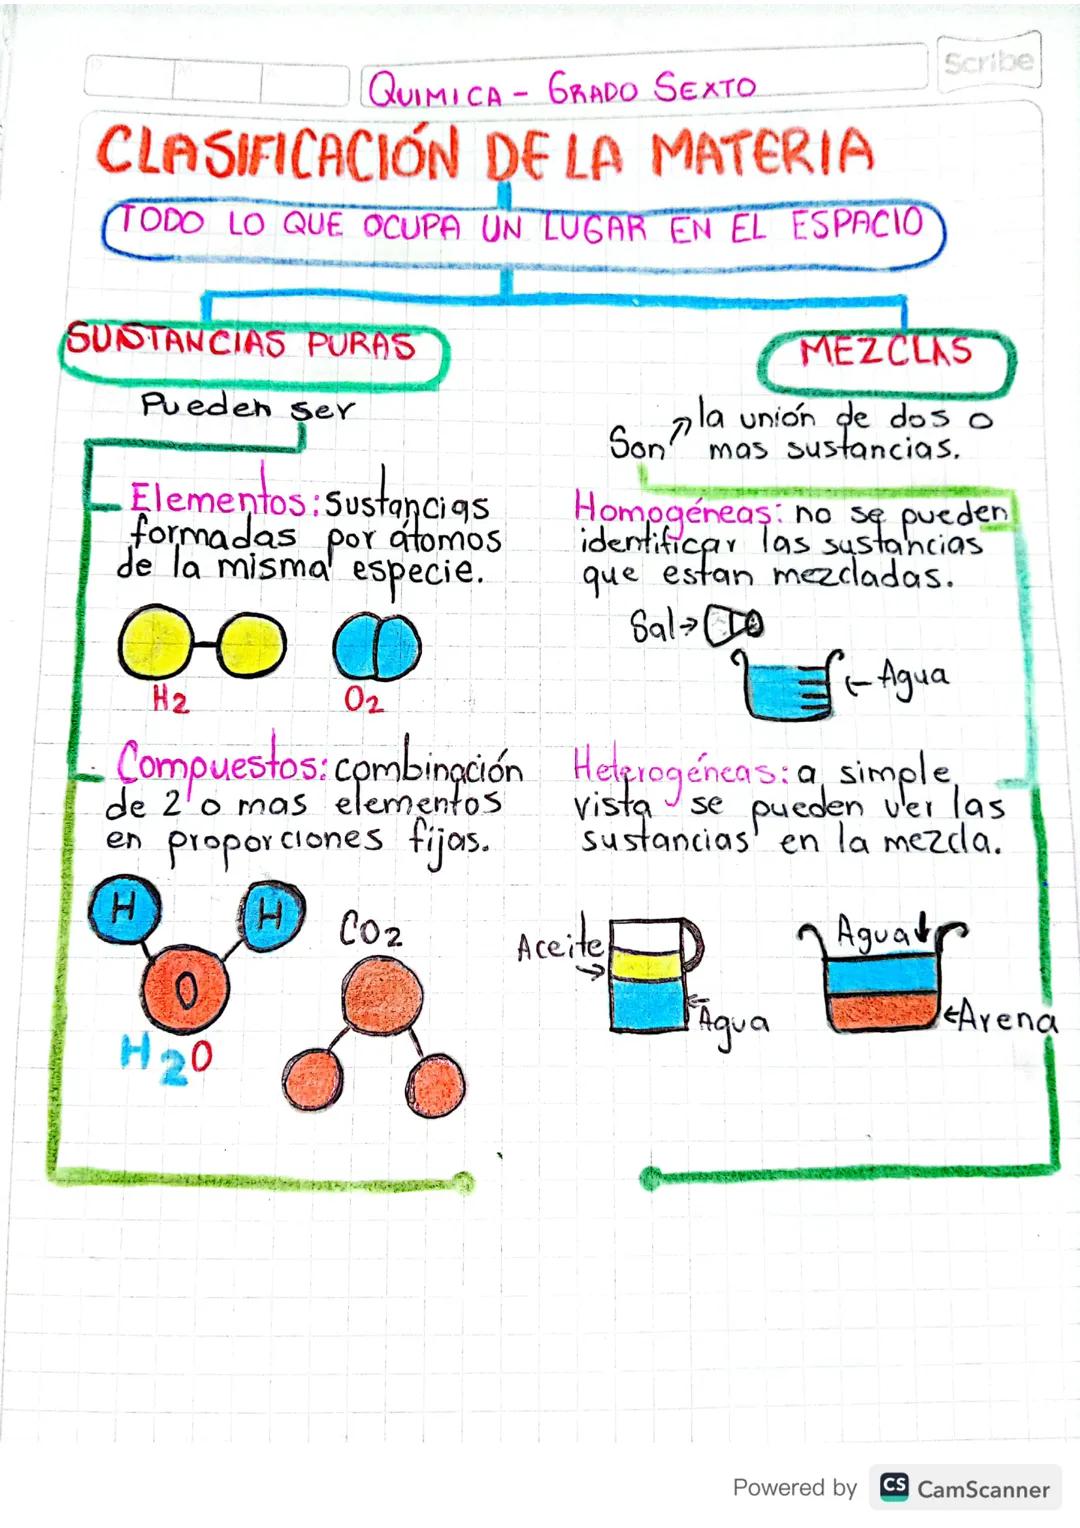 Scribe
QUIMICA - GRADO SEXTO
CLASIFICACIÓN DE LA MATERIA
TODO LO QUE OCUPA UN LUGAR EN EL ESPACIO
SUSTANCIAS PURAS
Pueden ser
Elementos: Sustancias
formadas por átomos
de la misma especie.
H2
O2
Compuestos: combinación
de 2 o mas elementos
en proporciones fijas.
H
H
O
H2O
CO2
MEZCLAS
Son la unión de dos o
mas sustancias.
Homogéneas: no se pueden
identificar las sustancias
que estan mezcladas.
Sal
Agua
Heterogéneas: a simple
vista se pueden ver las
sustancias en la mezcla.
Aceite
Agua
Agua
Arena
Powered by CS CamScanner